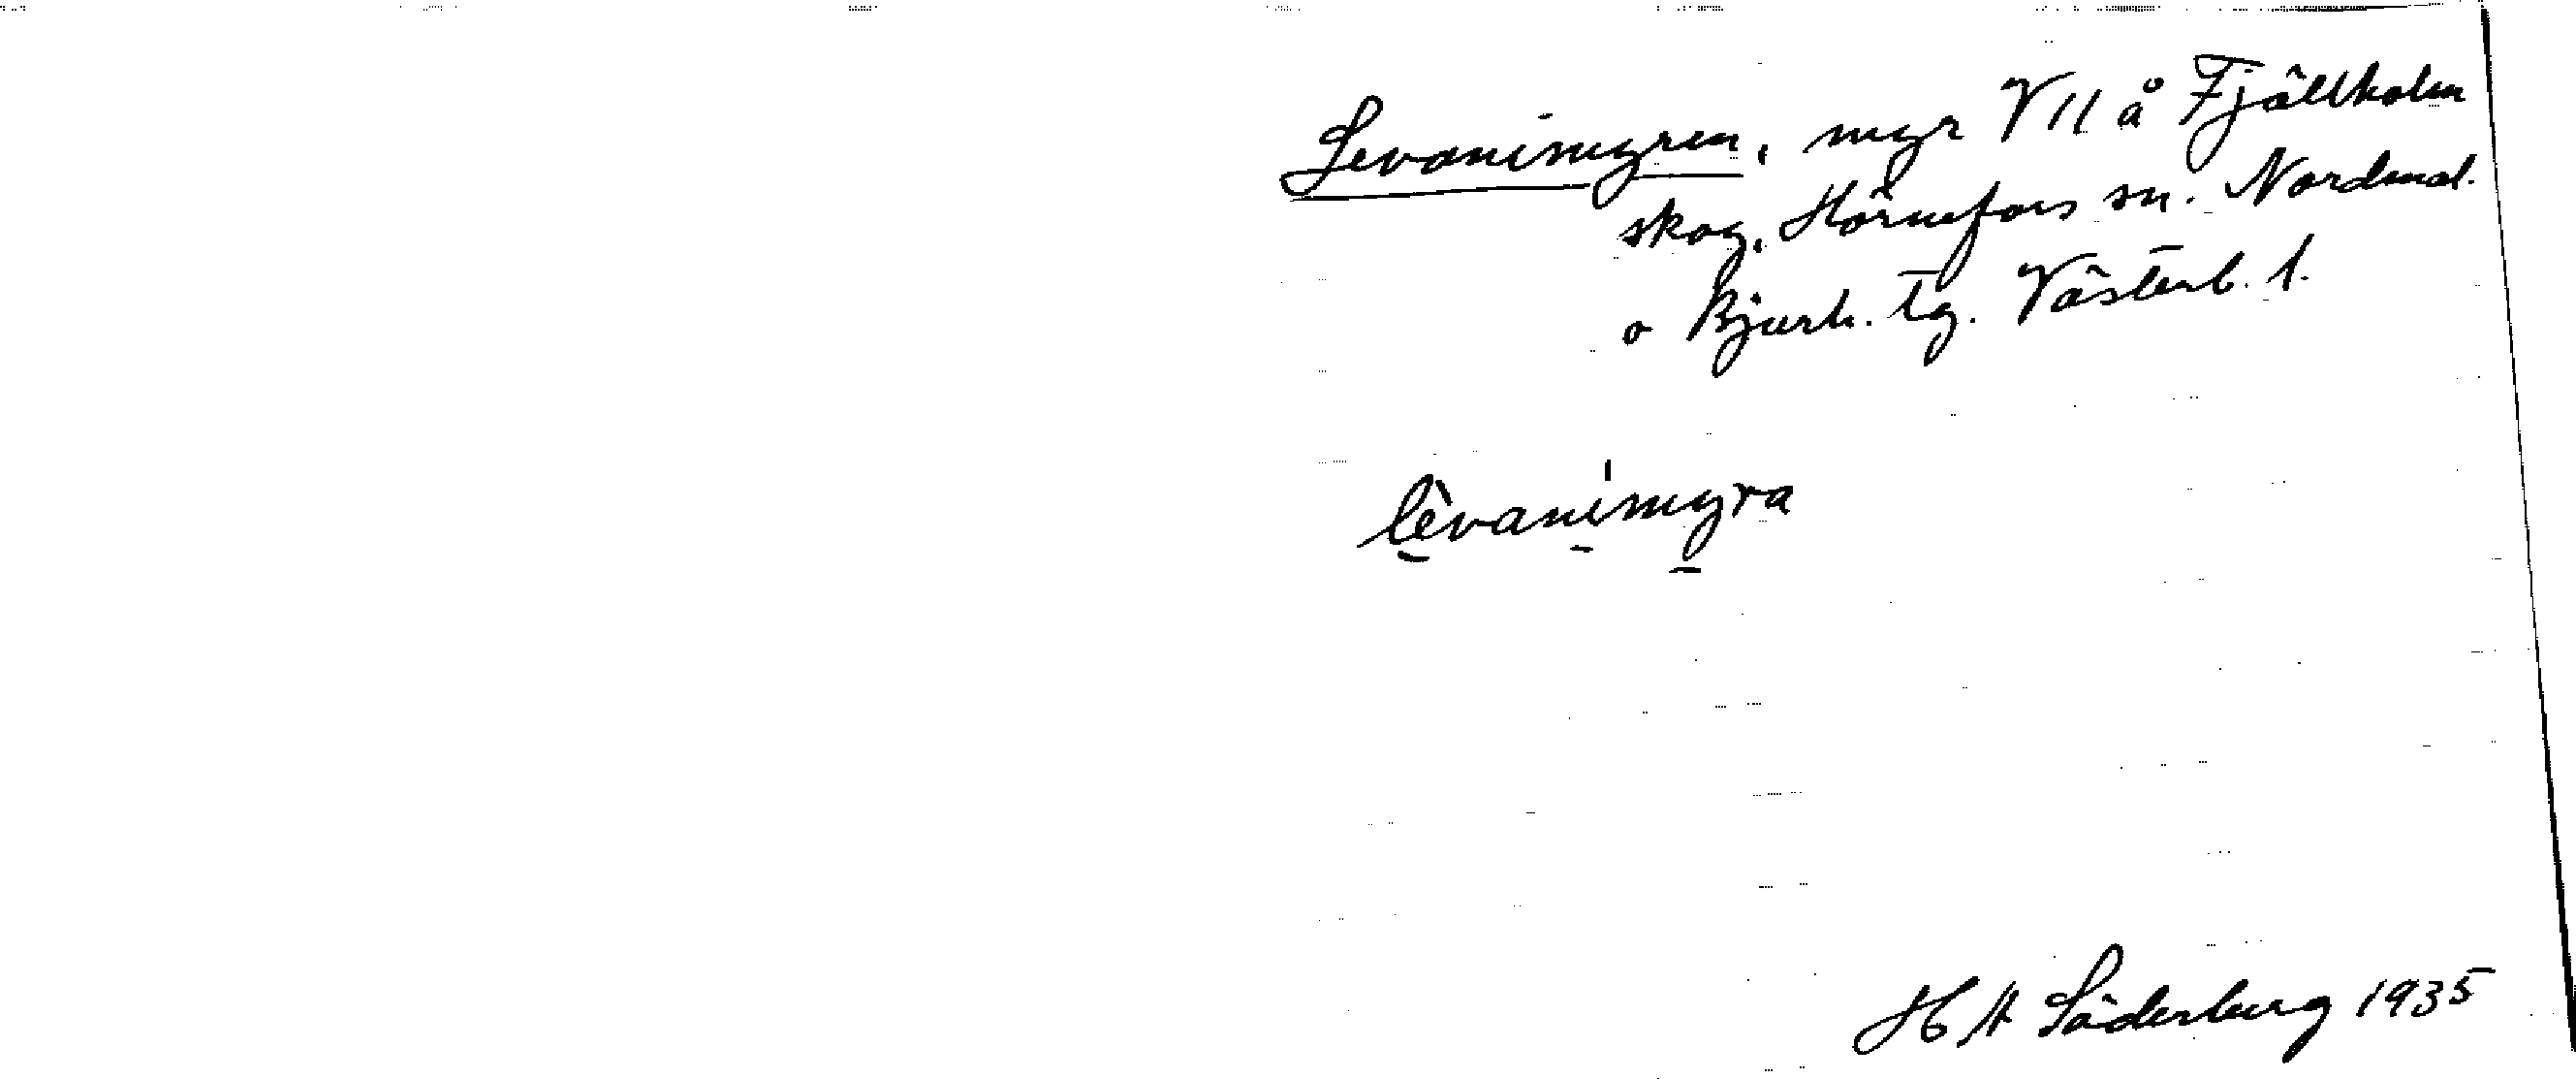 Levanimyren, myr V ll å Fjällholm
skog, Hörnefors sn. Nordmal.
o Bjurh. tg. Västerb. l.
lèvanimyra
H H Söderberg 1935